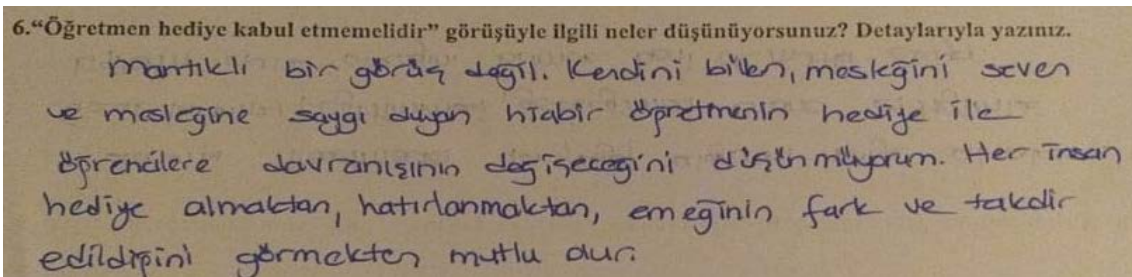 6.“Öğretmen hediye kabul etmemelidir” görüşüyle ilgili neler düşünüyorsunuz? Detaylarıyla yazınız.
Mantıklı bir görüş değil. Kendini bilen, mesleğini seven
ve mesleğine saygı duyan hiçbir öğretmenin hediye ile
öğrencilere davranışının değişeceğini düşünmüyorum. Her insan
hediye almaktan, hatırlanmaktan, emeğinin fark ve takdir
edildiğini görmekten mutlu olur.